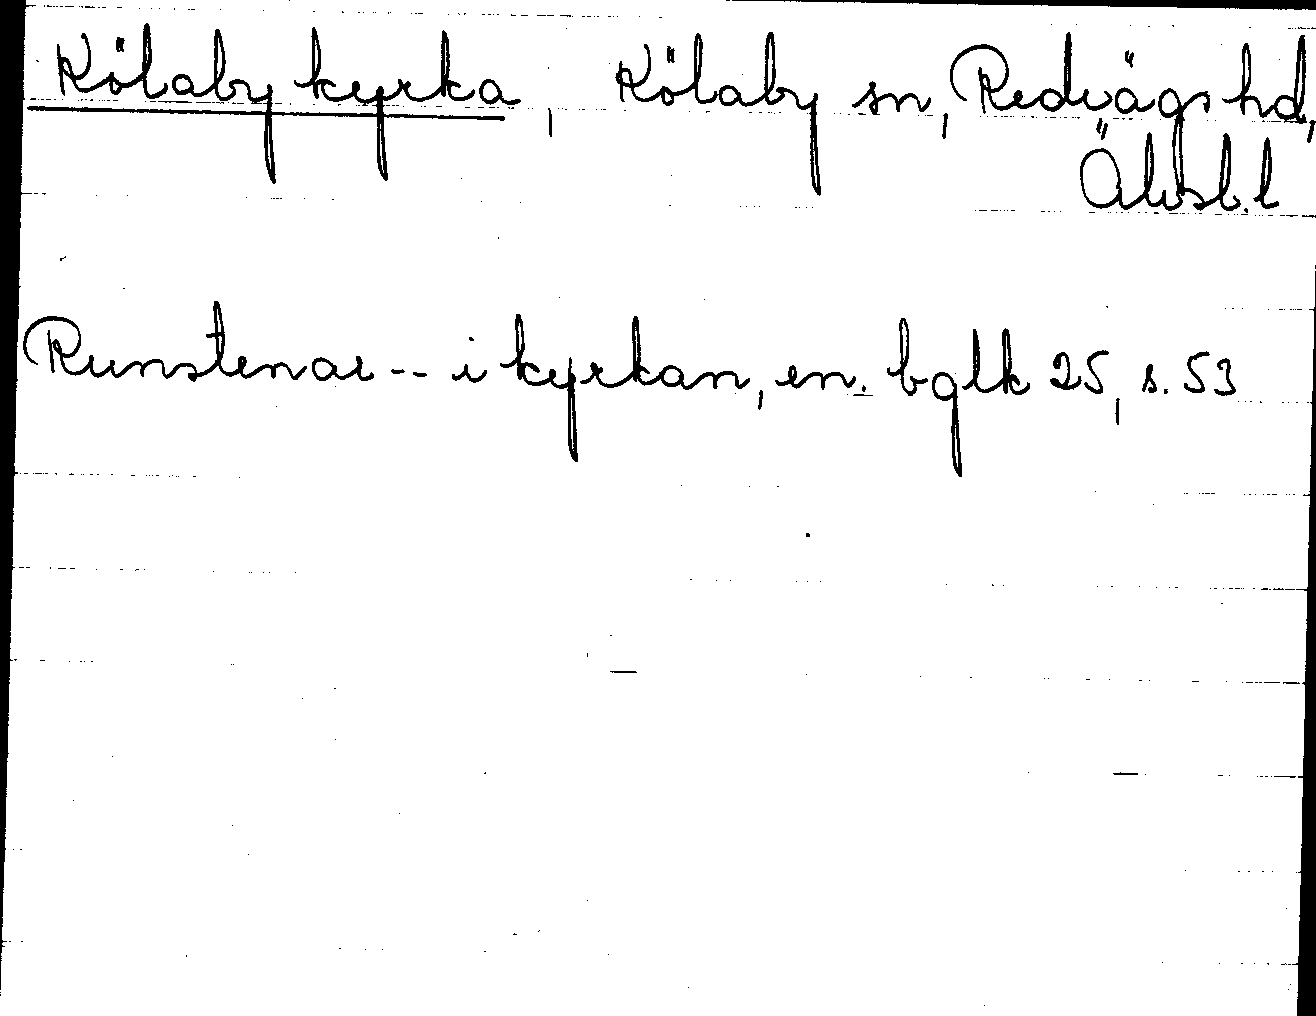 Kölaby kyrka, Kölaby sn, Redvägs hd,
Älvsb. l
Runstenar -- i kyrkan, en. bglk 25, s. 53